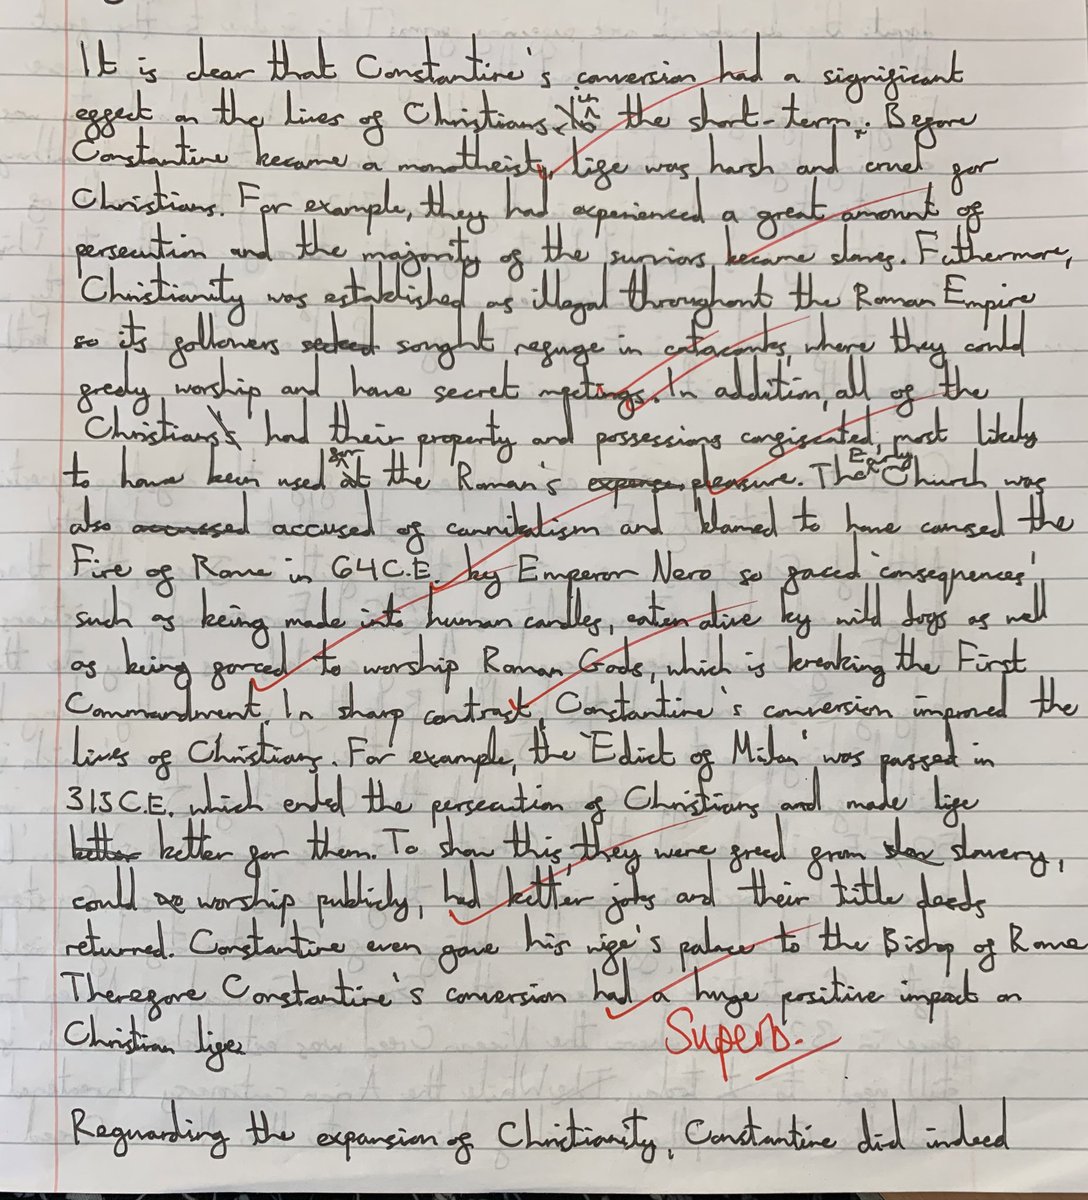 It is clear that Constantine's conversion had a significant
effect on the lives of Christians in the short-term. Before
Constantine became a monotheist, life was harsh and cruel for
Christians. For example, they had experienced a great amount of
persecution and the majority of the surviors became slaves. Futhermore,
Christianity was established as illegal throughout the Roman Empire
so its followers seeked sought refuge in catacombs, where they could
freely worship and have secret meetings. In addition, all of the
Christians had their property and possessions confiscated, most likely
to have been used for the Roman's expense pleasure. The Early Church was
also accussed accused of cannibalism and blamed to have caused the
Fire of Rome in 64C.E. by Emperor Nero so faced 'consequences'
such as being made into human candles, eaten alive by wild dogs as well
as being forced to worship Roman Gods, which is breaking the First
Commandment. In sharp contrast, Constantine's conversion improved the
lives of Christians. For example, the 'Edict of Milan' was passed in
313C.E. which ended the persecution of Christians and made life
better better for them. To show this, they were freed from slav slavery,
could wo worship publicly, had better jobs and their title deeds
returned. Constantine even gave his wife's palace to the Bishop of Rome
Therefore Constantine's conversion had a huge positive impact on
Christian life.
Superb.
Reguarding the expansion of Christianity, Constantine did indeed